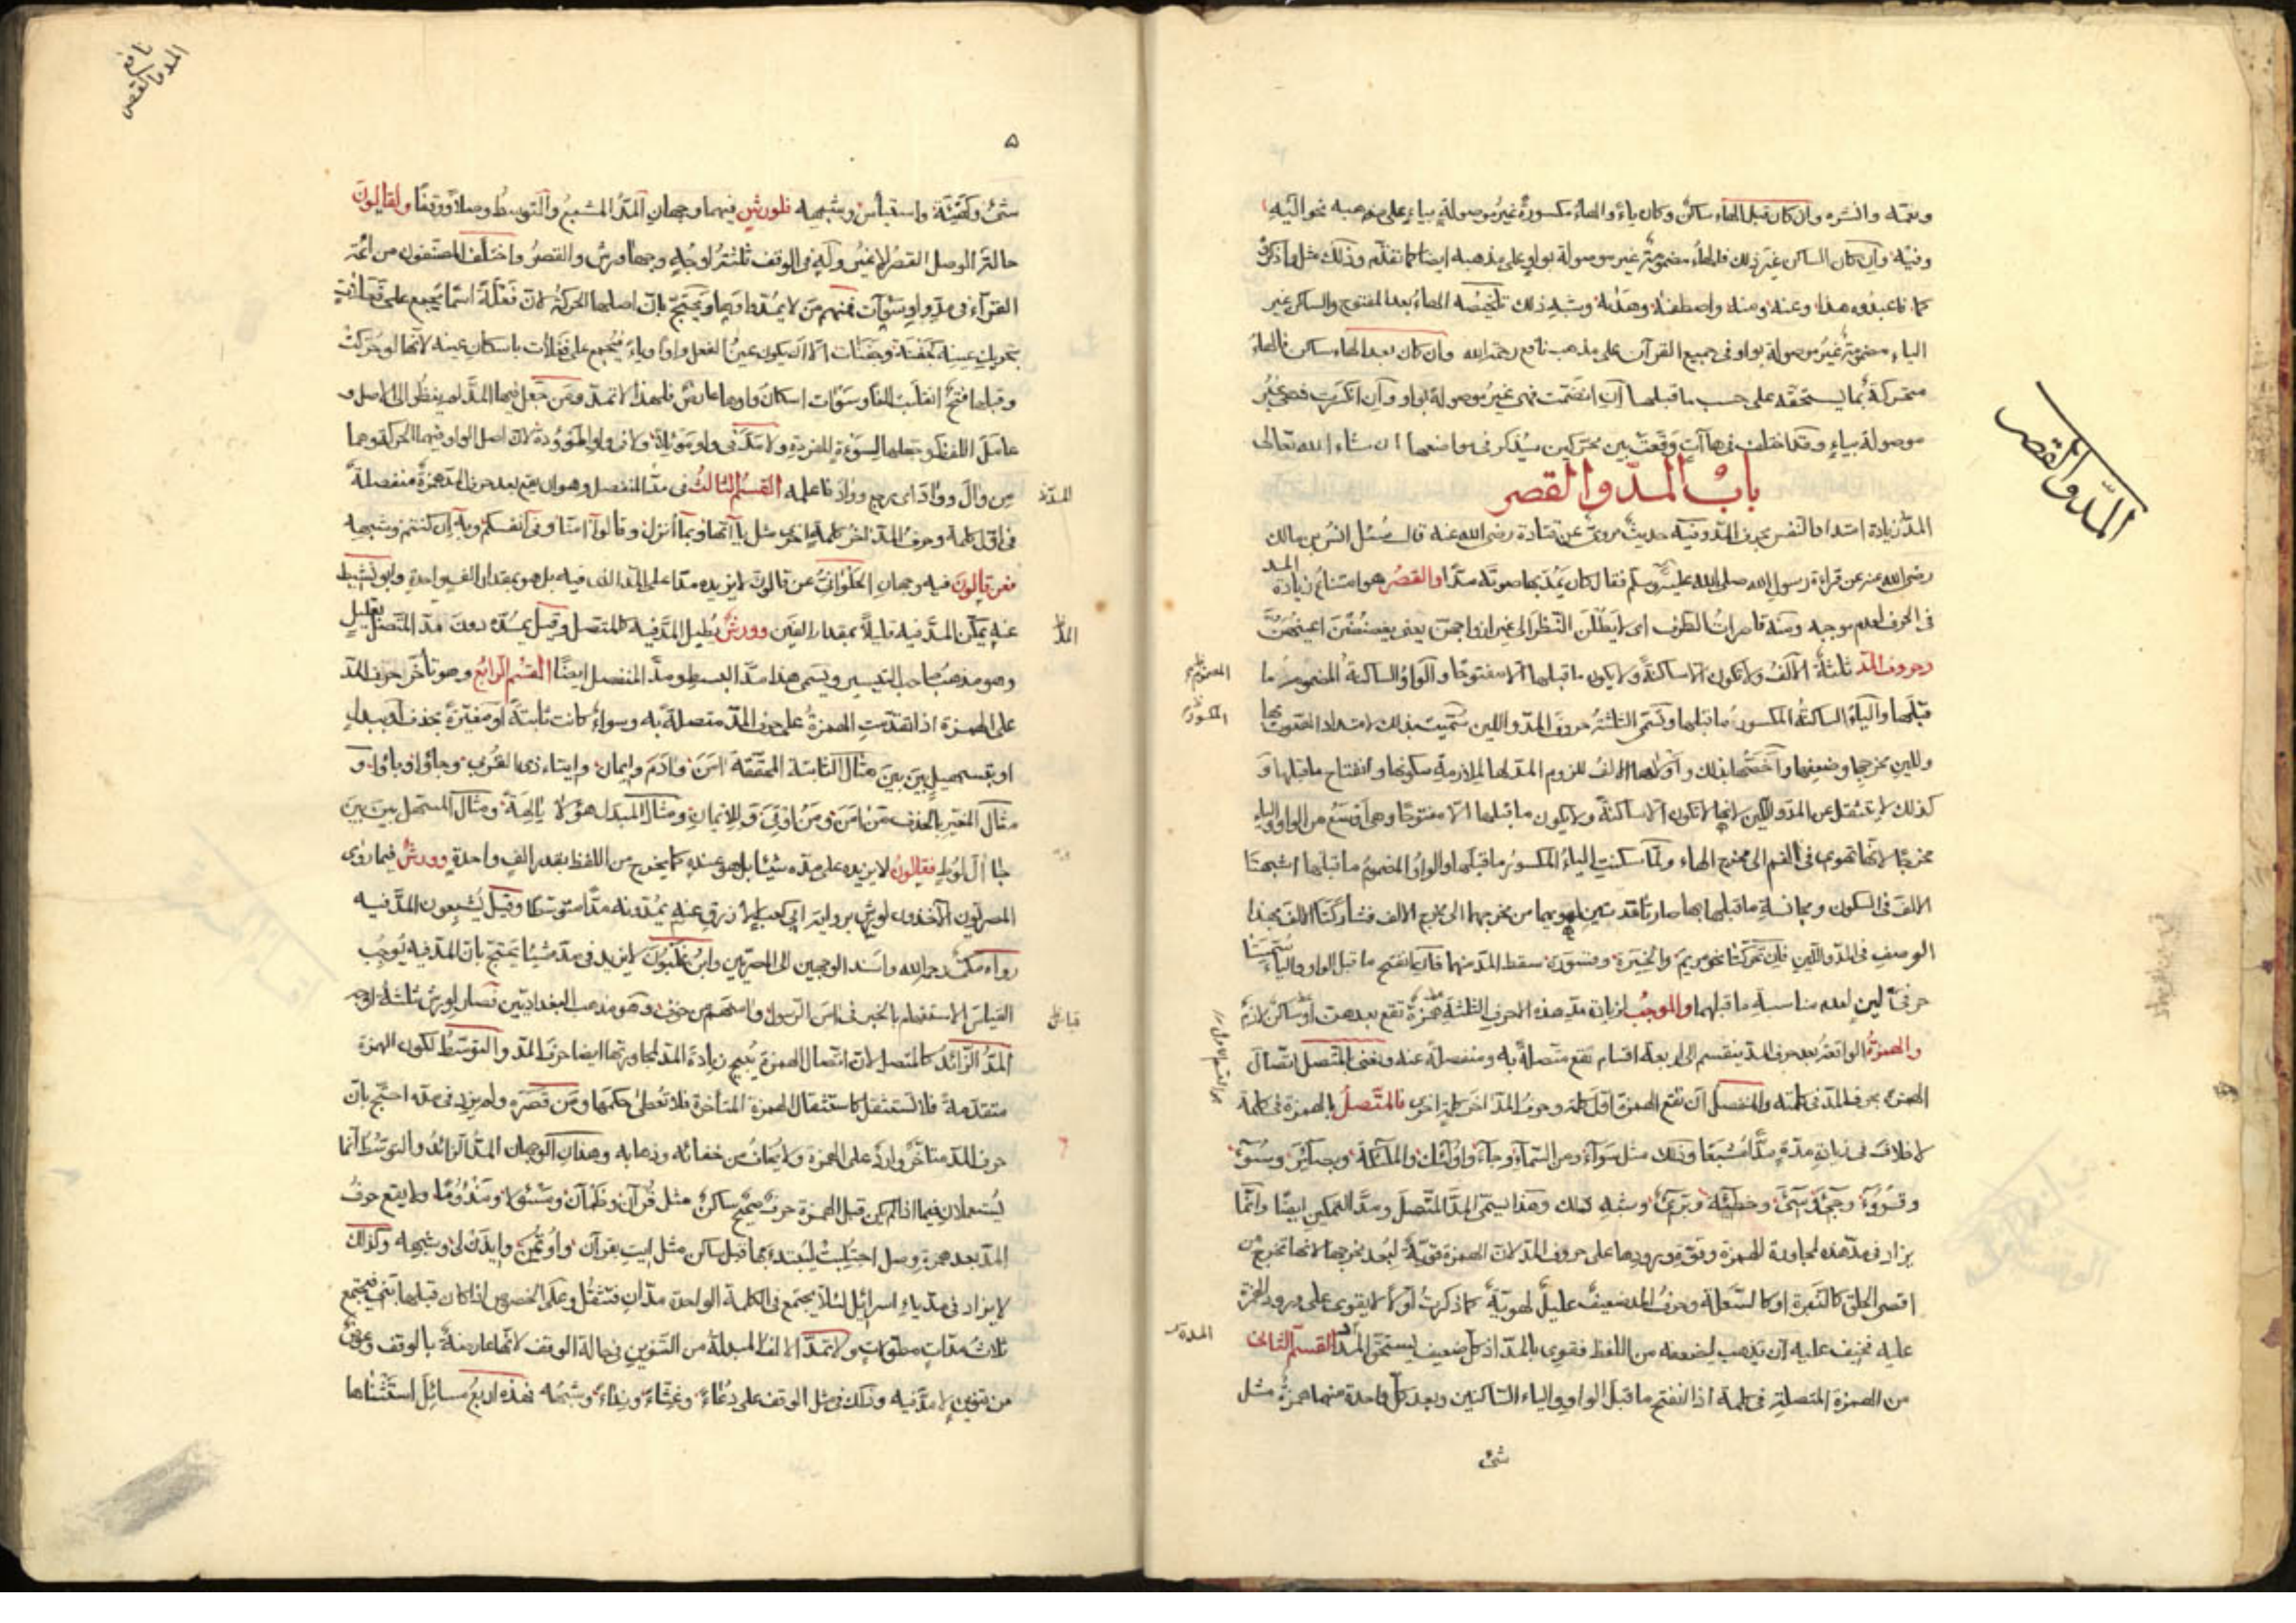 وان كان قبل الهاء ساكن وكان ياءً والهاء مكسورة غير موصولة بياء على مذهبه نحو اليه
وفيه وان كان الساكن غير ذلك فالهاء مضمومة غير موصولة بواو على مذهبه ايضا كما تقدم وذلك مثل ما ذكر
فاعبدوه هذا وعنه ومنه وشبه ذلك تلخيصه الهاء بعد المفتوح والساكن غير
الياء مضمومة غير موصولة بواو في جميع القرآن على مذهب نافع رحمه الله وان كان بعد الهاء ساكن فالهاء
متحركة بما يستحقه على حسب ما قبلها ان انضمت فهي غير موصولة بواو وان انكسرت فهي غير
موصولة بياء وقد اختلف في هاآت وقعت بين محركين سيذكر في مواضعها ان شاء الله تعالى
باب المدّ والقصر
المدّ والقصر
المد زيادة امتداد النفس بحرف المد وفيه حديث مروي عن قتادة رضي الله عنه قال سئل انس بن مالك
رضي الله عنه عن قراءة رسول الله صلى الله عليه وسلم فقال كان يمدّ بها صوته مدّا والقصر هو امتناع زيادة المد
في الحرف لعدم موجبه ومنه قاصرات الطرف اى لا يطلن النظر الى غير ازواجهن يعني يغضضن اعينهن
وحروف المد ثلثة الالف ولا تكون الا ساكنة ولا يكون ما قبلها الا مفتوحا والواو الساكنة المضموم ما
قبلها والياء الساكنة المكسور ما قبلها وتسمى الثلثة حروف المد واللين سميت بذلك لامتداد الصوت بها
وللين مخرجها وضعفها واخصها بذلك الالف للزوم المد لها لملازمة سكونها وانفتاح ما قبلها و
كذلك لا تنتقل عن المد واللين لانها لا تكون الا ساكنة ولا يكون ما قبلها الا مفتوحا وهي اوسع من الواو والياء
مخرجًا لانها تهوي في الفم الى مخرج الهاء ولما سكنت الياء المكسور ما قبلها والواو المضموم ما قبلها اشبهتا
الالف في السكون ومجانسة ما قبلها بها من مخرجهما الى مخرج الالف فشاركتا الالف بهذا
الوصف في المد واللين فان تحركتا نحو مريم والخيرة سقط المد منهما فان انفتح ما قبل الواو والياء سميتا
حرفي لين لعدم مناسبة ما قبلهما والموجب لزيادة مد هذه الاحرف الثلثة همزة تقع بعدهن او ساكن لازم
والهمزة الواقعة بعد حرف المد ينقسم الى اربعة اقسام تقع متصلة به ومنفصلة عنه ونعني بالمتصل اتصال
الهمزة بحرف المد في كلمته والمنفصل ان تقع الهمزة اول كلمة وحرف المد اخر كلمة اخرى فالمتصل بالهمزة في كلمة
لا خلاف في زيادة مدّه مدّا مشبعا وذلك مثل سواء ومن السماء وجاء واولئك والملائكة وبصائر وسوء
وقروء وجيء وسيء وخطيئة وبريء وشبه ذلك وهذا يسمى المد المتصل ومد التمكين ايضا وانما
يزاد في مد هذه لمجاورة الهمزة وقوة ورودها على حروف المد لان الهمزة قوية لبعد مخرجها لانها تخرج من
اقصى الحلق كالنبرة او كالسعلة وحرف المد ضعيف عليل كما ذكرت اولا لا يقوى على ورود الهمزة
عليه فخيف عليه ان يذهب لضعفه من اللفظ فقوي بالمد اذ كل ضعيف يستحق المد القسم الثاني
من الهمزة المتصلة في كلمة اذا انفتح ما قبل الواو والياء الساكنين وبعد كل واحدة منهما همزة مثل
شئ
المضموم
المكسور
المدة
نافع
المد والقصر
٥
شئ وكهيئة واستيأس وشبهه فلورش فيهما وجهان المد المشبع والتوسط وصلا ووقفا ولقالون
حالة الوصل القصر لا غير وله في الوقف ثلثة اوجه وجها ورش والقصر واختلف المصنفون من ائمة
القرآء في مد واو سوآت فمنهم من لا يمد واوها ويحتج بان اصلها الحركة لان فعلة اسما يجمع على فعلات
بتحريك عينه كجفنة وجفنات الا ان يكون عين الفعل واوا وياء فيجمع على فعلات باسكان عينه لانها لو حركت
وقبلها فتح انقلبت الفا وسوآت اسكان واوها عارض فلهذا لا تمد ومن جعل فيها المد لم ينظر الى الاصل و
عامل اللفظ وجعلها كسوءة المفردة ولا مد في واو موئلا ولا في واو الموؤدة لان اصل الواو فيهما الحركة وهما
من وأل ووأد اى رجع ووأد فاعلمه القسم الثالث في مد المنفصل وهو ان يقع بعد حرف المد همزة منفصلة
في اول كلمة وحرف المد اخر كلمة اخرى مثل يا ايها وبما انزل وقالوا امنا وفي انفسكم وبه ان كنتم وشبهه
فعن قالون فيه وجهان الحلواني عن قالون لا يزيده مدا على المد الذي فيه بل هو بمقدار الف واحدة وابو نشيط
عنه يمكن المد فيه قليلا بمقدار الفين وورش يطيل المد فيه كالمتصل وقيل يمده دون مد المتصل بقليل
وهو مذهب صاحب التيسير ويسمى هذا مد البسط ومد المنفصل ايضا القسم الرابع وهو تأخر حرف المد
على الهمزة اذا تقدمت الهمزة على حرف المد متصلة به وسواء كانت ثابتة او مغيّرة بحذف او ببدل
او بتسهيل بين بين مثال الثابتة المحققة امن وادم وايمان وايتاء ذي القربى وجاؤا وباؤا و
مثال المغير بالحذف من امن ومن اوتي وللايمان ومثال المبدل هؤلاء يالهة ومثال المسهل بين بين
جاء ال لوط فقالون لا يزيده على مدّه شيئا بل هو عنده كما يخرج من اللفظ بقدر الف واحدة وورش فيما روى
المصريون الاخذون لورش برواية ابي يعقوب الازرق عنه يمدونه مدا متوسطا وقيل يشبعون المد فيه
رواه مكي رحمه الله واسند الوجهين الى المصريين وابن غلبون لا يزيد في مده شيئا يحتج بان المد فيه يوجب
التباس الاستفهام بالخبر في امن الرسول وامنهم من خوف وهو مذهب البغداديين فصار لورش ثلثة اوجه
المد الزائد كالمتصل لان اتصال الهمزة يبيح زيادة المد لمجاورتها ايضا حرف المد والتوسط لكون الهمزة
متقدمة فلا تستثقل كاستثقال الهمزة المتأخرة فلا تعطى حكمها ومن قصره ولم يزد في مده احتج بان
حرف المد متأخر وارد على الهمزة ولا يخاف من خفائه وذهابه وهذان الوجهان المد الزائد والتوسط انما
يستعملان فيما اذا لم يكن قبل الهمزة حرف صحيح ساكن مثل قرآن وظمآن ومسؤلا ومذؤما ولا يقع حرف
المد بعد همزة وصل اجتلبت ليبتدء بها قبل ساكن مثل ايت بقرآن واوتمن وايذن لي وشبهه وكذلك
لا يزاد في مد ياء اسرائيل لئلا يجتمع في الكلمة الواحدة مدان فتثقل وعلى الخصوص اذا كان قبلها بني فيجتمع
ثلاث مدات مطولات ولا تمد الالف المبدلة من التنوين في حالة الوقف لانها عارضة بالوقف وعوض
من تنوين لا مد فيه وذلك في مثل الوقف على دعاء وغثاء ونداء وشبهه فهذه اربع مسائل استثناها